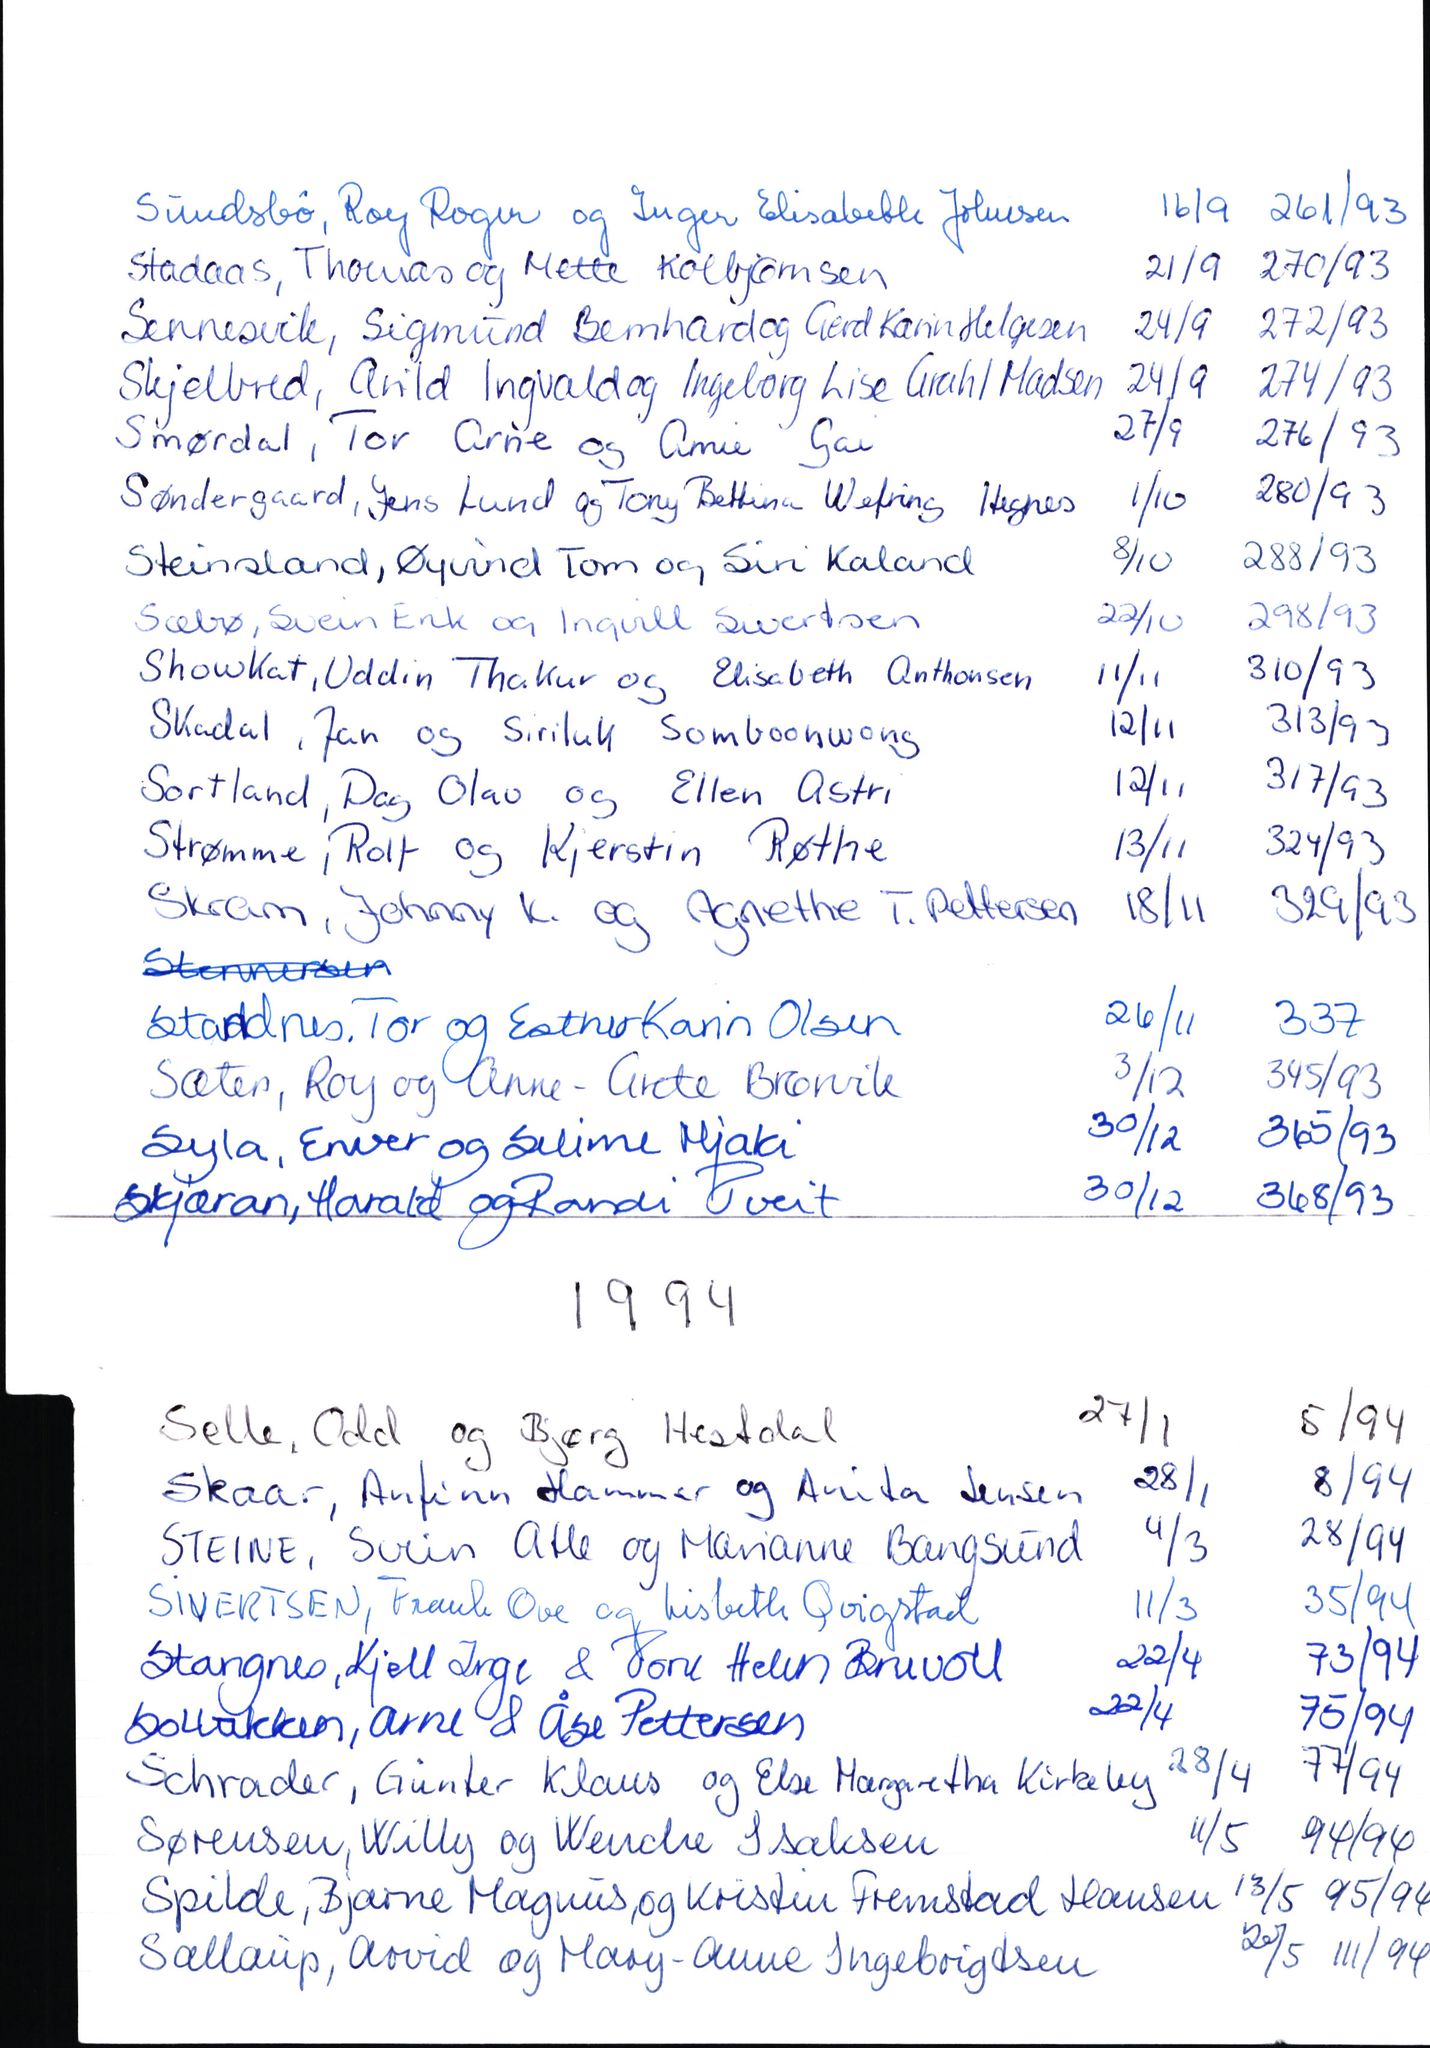 Sundsbö, Roy Roger og Inger Elisabeth Johnsen 16/9 261/93
Stadaas, Thomas og Mette Kolbjørnsen 21/9 270/93
Sennesvik, Sigmund Bernhard og Gerd Karin Helgesen 24/9 272/93
Skjelbred, Arild Ingvald og Ingeborg Lise Grahl Madsen 24/9 274/93
Smørdal, Tor Arne og Anne Gai 27/9 276/93
Søndergaard, Jens Lund og Tony Bettina Wefring Hegnes 1/10 280/93
Steinsland, Øyvind Tom og Siri Kaland 8/10 288/93
Sæbø, Svein Erik og Ingvill Sivertsen 22/10 298/93
Showkat, Uddin Thakur og Elisabeth Anthonsen 11/11 310/93
Skadal, Jan og Siriluk Somboonwong 12/11 313/93
Sortland, Dag Olav og Ellen Astri 12/11 317/93
Strømme, Rolf og Kjerstin Røthe 13/11 324/93
Skram, Johnny K. og Agnethe T. Pettersen 18/11 329/93
Stennersen
Standnes, Tor og Esther Karin Olsen 26/11 337
Sæter, Roy og Anne-Grete Brørvik 3/12 345/93
Syla, Enver og Selime Mjaki 30/12 365/93
Skjæran, Harald og Randi Tveit 30/12 368/93
1994
Selle, Odd og Bjørg Hestdal 27/1 5/94
Skaar, Anfinn Hammer og Anita Jensen 28/1 8/94
STEINE, Svein Atle og Marianne Bangsund 4/3 28/94
SIVERTSEN, Frank Ove og Lisbeth Qvigstad 11/3 35/94
Stangnes, Kjell Inge & Tone Helen Brevoll 22/4 73/94
Solbakken, Arne & Åse Pettersen 22/4 75/94
Schrader, Günter Klaus og Else Margaretha Kirkeby 28/4 77/94
Sørensen, Willy og Wenche Isaksen 11/5 94/94
Spilde, Bjarne Magnus, og Kristin Fremstad Hansen 13/5 95/94
Sællaup, Arvid og Mary-Anne Ingebrigtsen /5 111/94